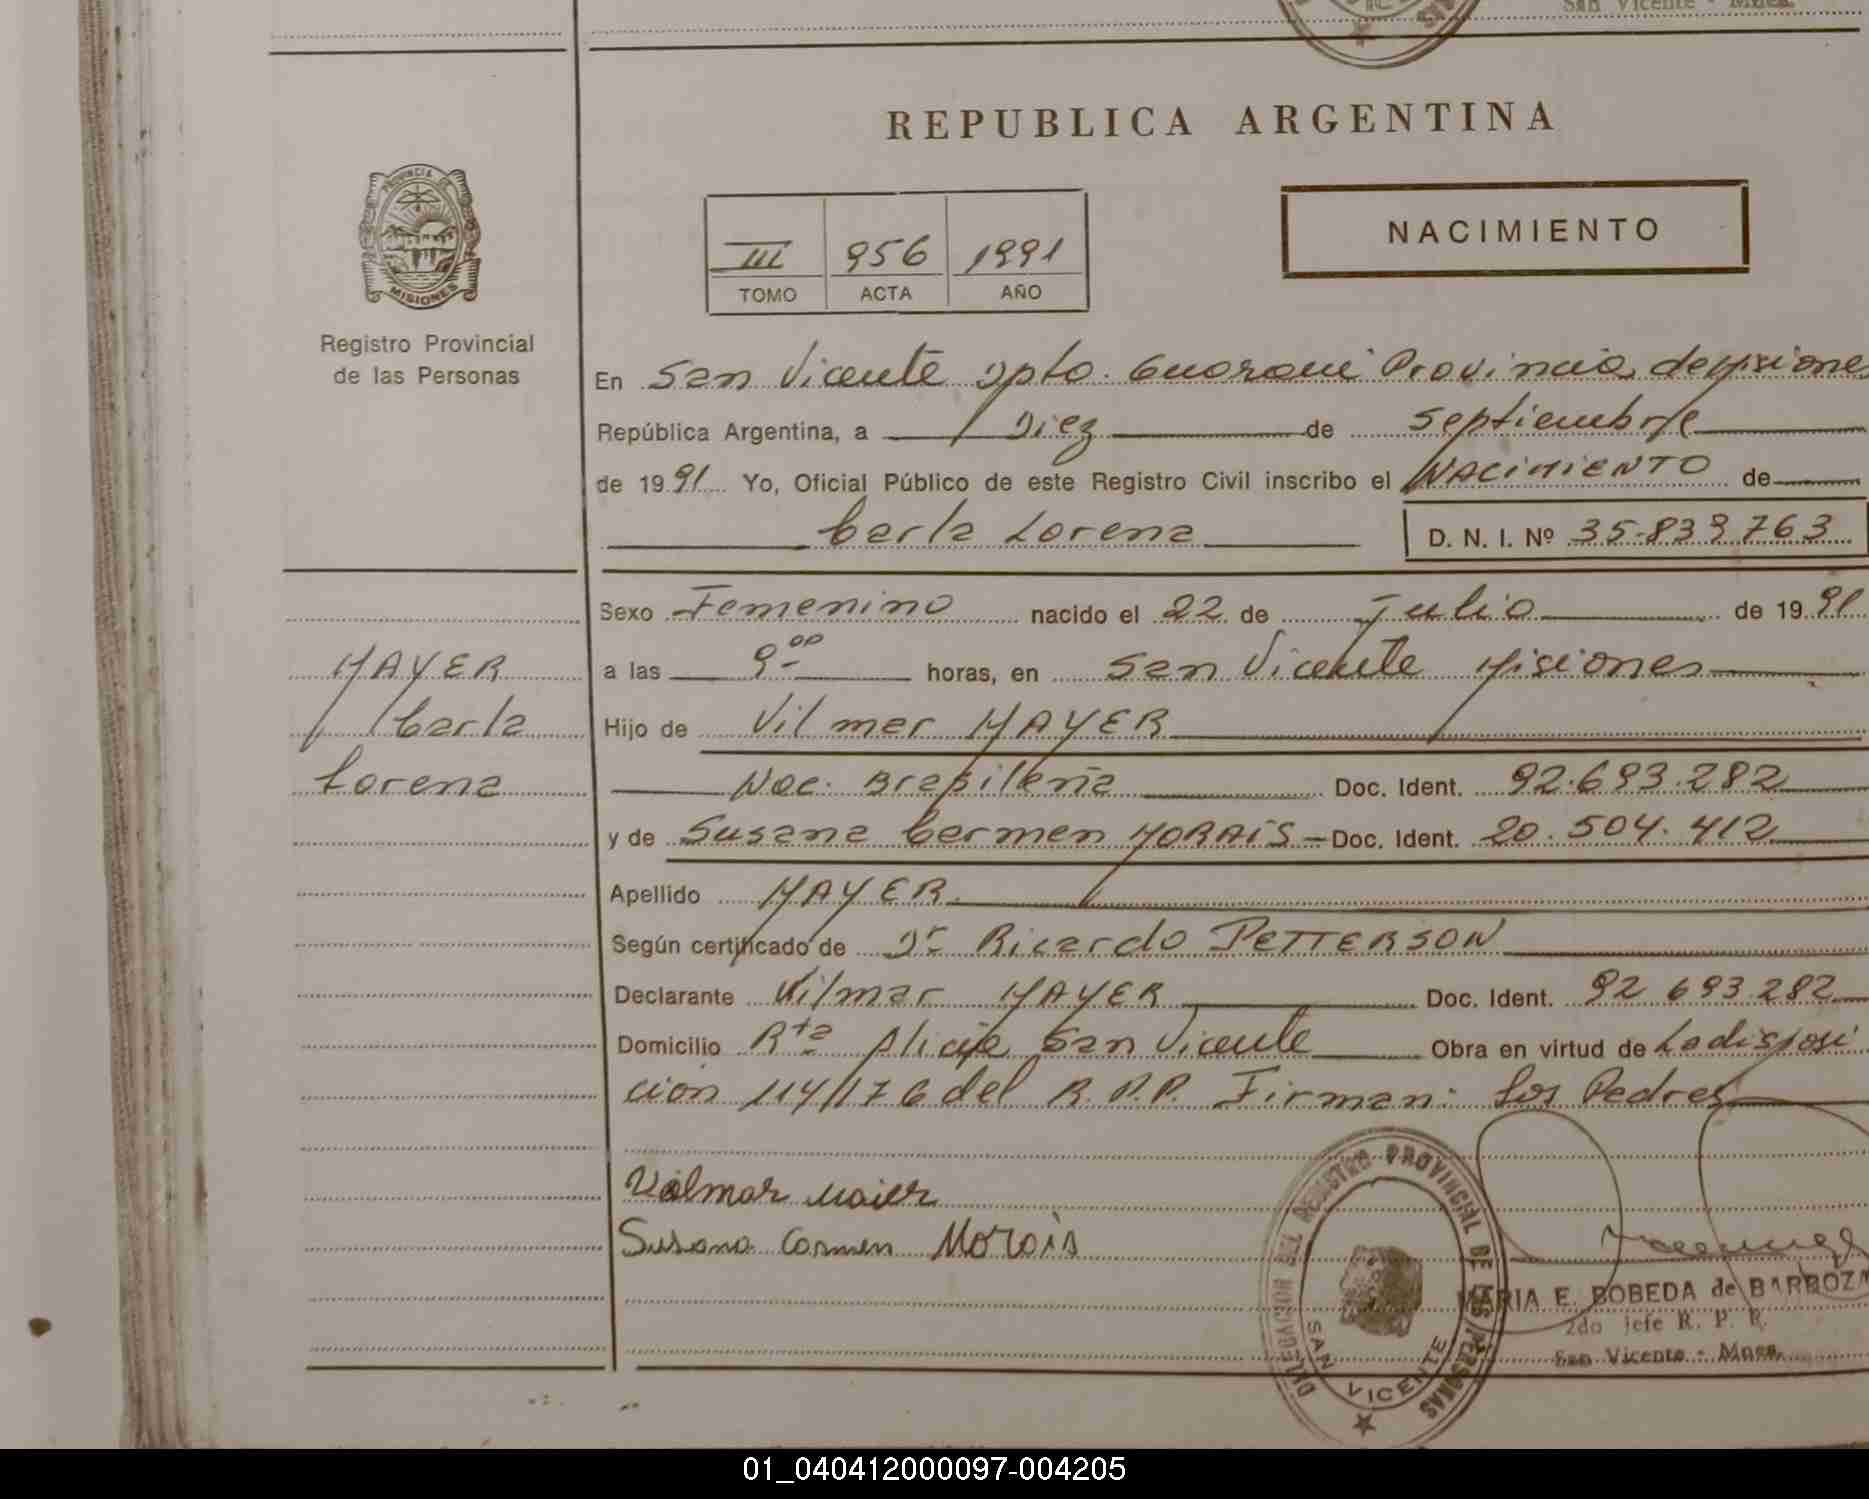 San Vicente - Mnes.
REPUBLICA ARGENTINA
PROVINCIA DE
MISIONES
Registro Provincial
de las Personas
III 956 1991
TOMO ACTA AÑO
NACIMIENTO
En San Vicente Dpto. Guarani Provincia de Misiones
República Argentina, a Diez de septiembre
de 1991 Yo, Oficial Público de este Registro Civil inscribo el NACIMIENTO de
Carla Lorena
D. N. I. Nº 35.839.763
Sexo Femenino nacido el 22 de Julio de 1991
a las 9 00 horas, en San Vicente Misiones
MAYER
Carla
Lorena
Hijo de Vilmar MAYER
Nac. Brasileña Doc. Ident. 92.693.282
y de Susana Carmen MORAIS - Doc. Ident. 20.504.412
Apellido MAYER.
Según certificado de Dr Ricardo PETTERSON
Declarante Vilmar MAYER Doc. Ident. 92 693 282
Domicilio Rta Alicia San Vicente Obra en virtud de La disposi
ción 114/176 del R.P.P. Firman: Los Padres
Vilmar Maier
Susana Carmen Morais
DELEGACION DEL REGISTRO PROVINCIAL DE LAS PERSONAS
SAN VICENTE
MARIA E. BOBEDA de BARBOZA
2do Jefe R. P. P.
San Vicente - Mnes.
01_040412000097-004205